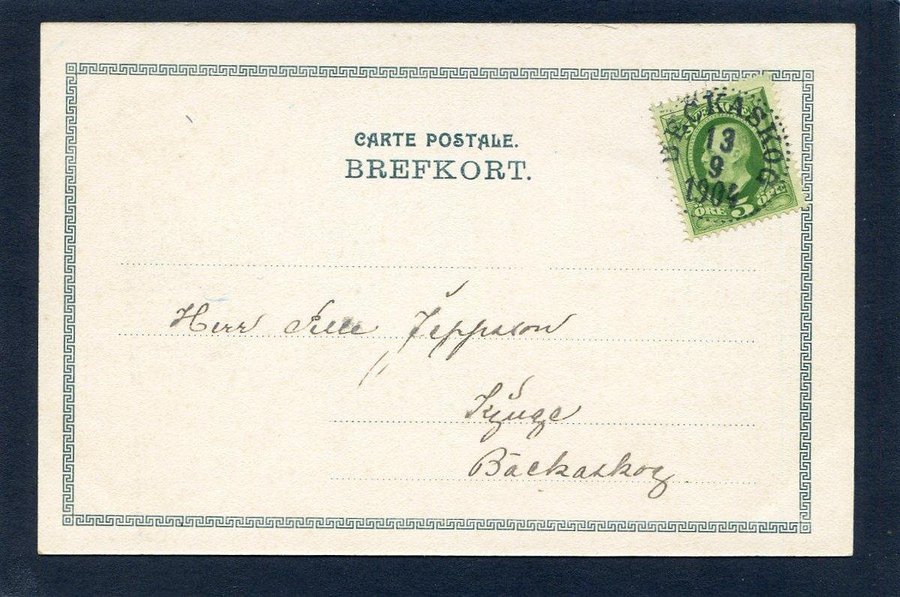 CARTE POSTALE.
BREFKORT.
BECKASKOG
13
9
1904
SVERIGE
5 ÖRE
Herr Pelle Jeppsson
Kjuge
Bäckaskog